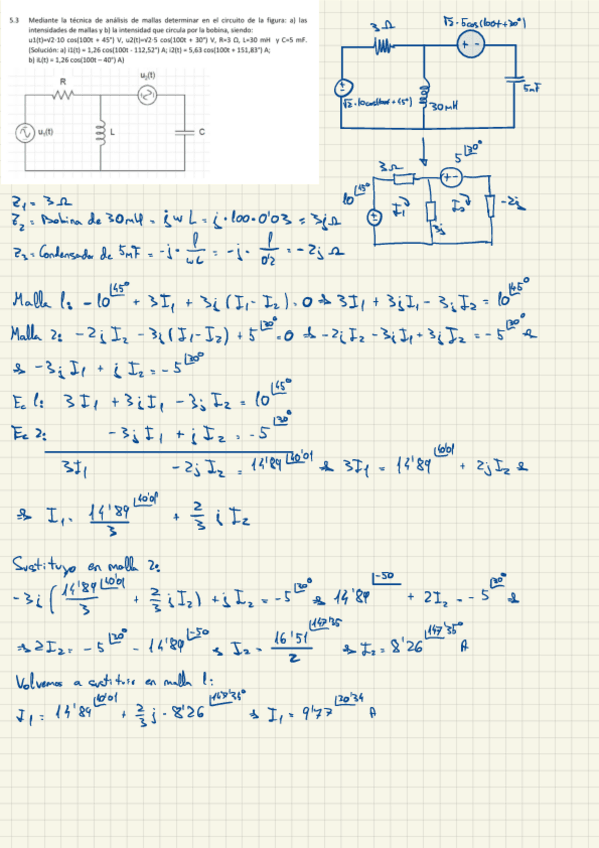 5.3 Mediante la técnica de análisis de mallas determinar en el circuito de la figura: a) las
intensidades de mallas y b) la intensidad que circula por la bobina, siendo:
u1(t)=√2·10 cos(100t + 45°) V, u2(t)=√2·5 cos(100t + 30°) V, R=3 Ω, L=30 mH y C=5 mF.
(Solución: a) i1(t) = 1,26 cos(100t - 112,52°) A; i2(t) = 5,63 cos(100t + 151,83°) A;
b) iL(t) = 1,26 cos(100t – 40°) A)
R
u₂(t)
u₁(t)
L
C
3 Ω
√2·5cos(100t+30°)
+ -
5mF
√2·10cos(100t+45°)
30mH
3Ω
5 |30°
+ -
10 |45°
I₁
I₂
3j
-2j
Z₁ = 3 Ω
Z₂ = Bobina de 30mH = j w L = j·100·0'03 = 3j Ω
Z₃ = Condensador de 5mF = -j · 1/wC = -j · 1/0'2 = -2j Ω
Malla 1: -10 |45° + 3I₁ + 3j (I₁-I₂) = 0 → 3I₁ + 3jI₁ - 3jI₂ = 10 |45°
Malla 2: -2j I₂ - 3j(I₁-I₂) + 5 |30° = 0 → -2jI₂ - 3jI₁ + 3jI₂ = -5 |30° →
→ -3jI₁ + jI₂ = -5 |30°
Ec 1: 3I₁ + 3jI₁ - 3jI₂ = 10 |45°
Ec 2: -3jI₁ + jI₂ = -5 |30°
3I₁ -2jI₂ = 14'89 |40'01 → 3I₁ = 14'89 |40'01 + 2jI₂ →
→ I₁ = 14'89 |40'01 / 3 + 2/3 j I₂
Sustituyo en malla 2:
-3j (14'89 |40'01 / 3 + 2/3 jI₂) + jI₂ = -5 |30° → 14'89 |-50 + 2I₂ = -5 |30° →
→ 2I₂ = -5 |30° - 14'89 |-50 → I₂ = 16'51 |147'35 / 2 → I₂ = 8'26 |147'35° A
Volvemos a sustituir en malla 1:
I₁ = 14'89 |40'01 + 2/3 j · 8'26 |147'35° → I₁ = 9'77 |20'34 A